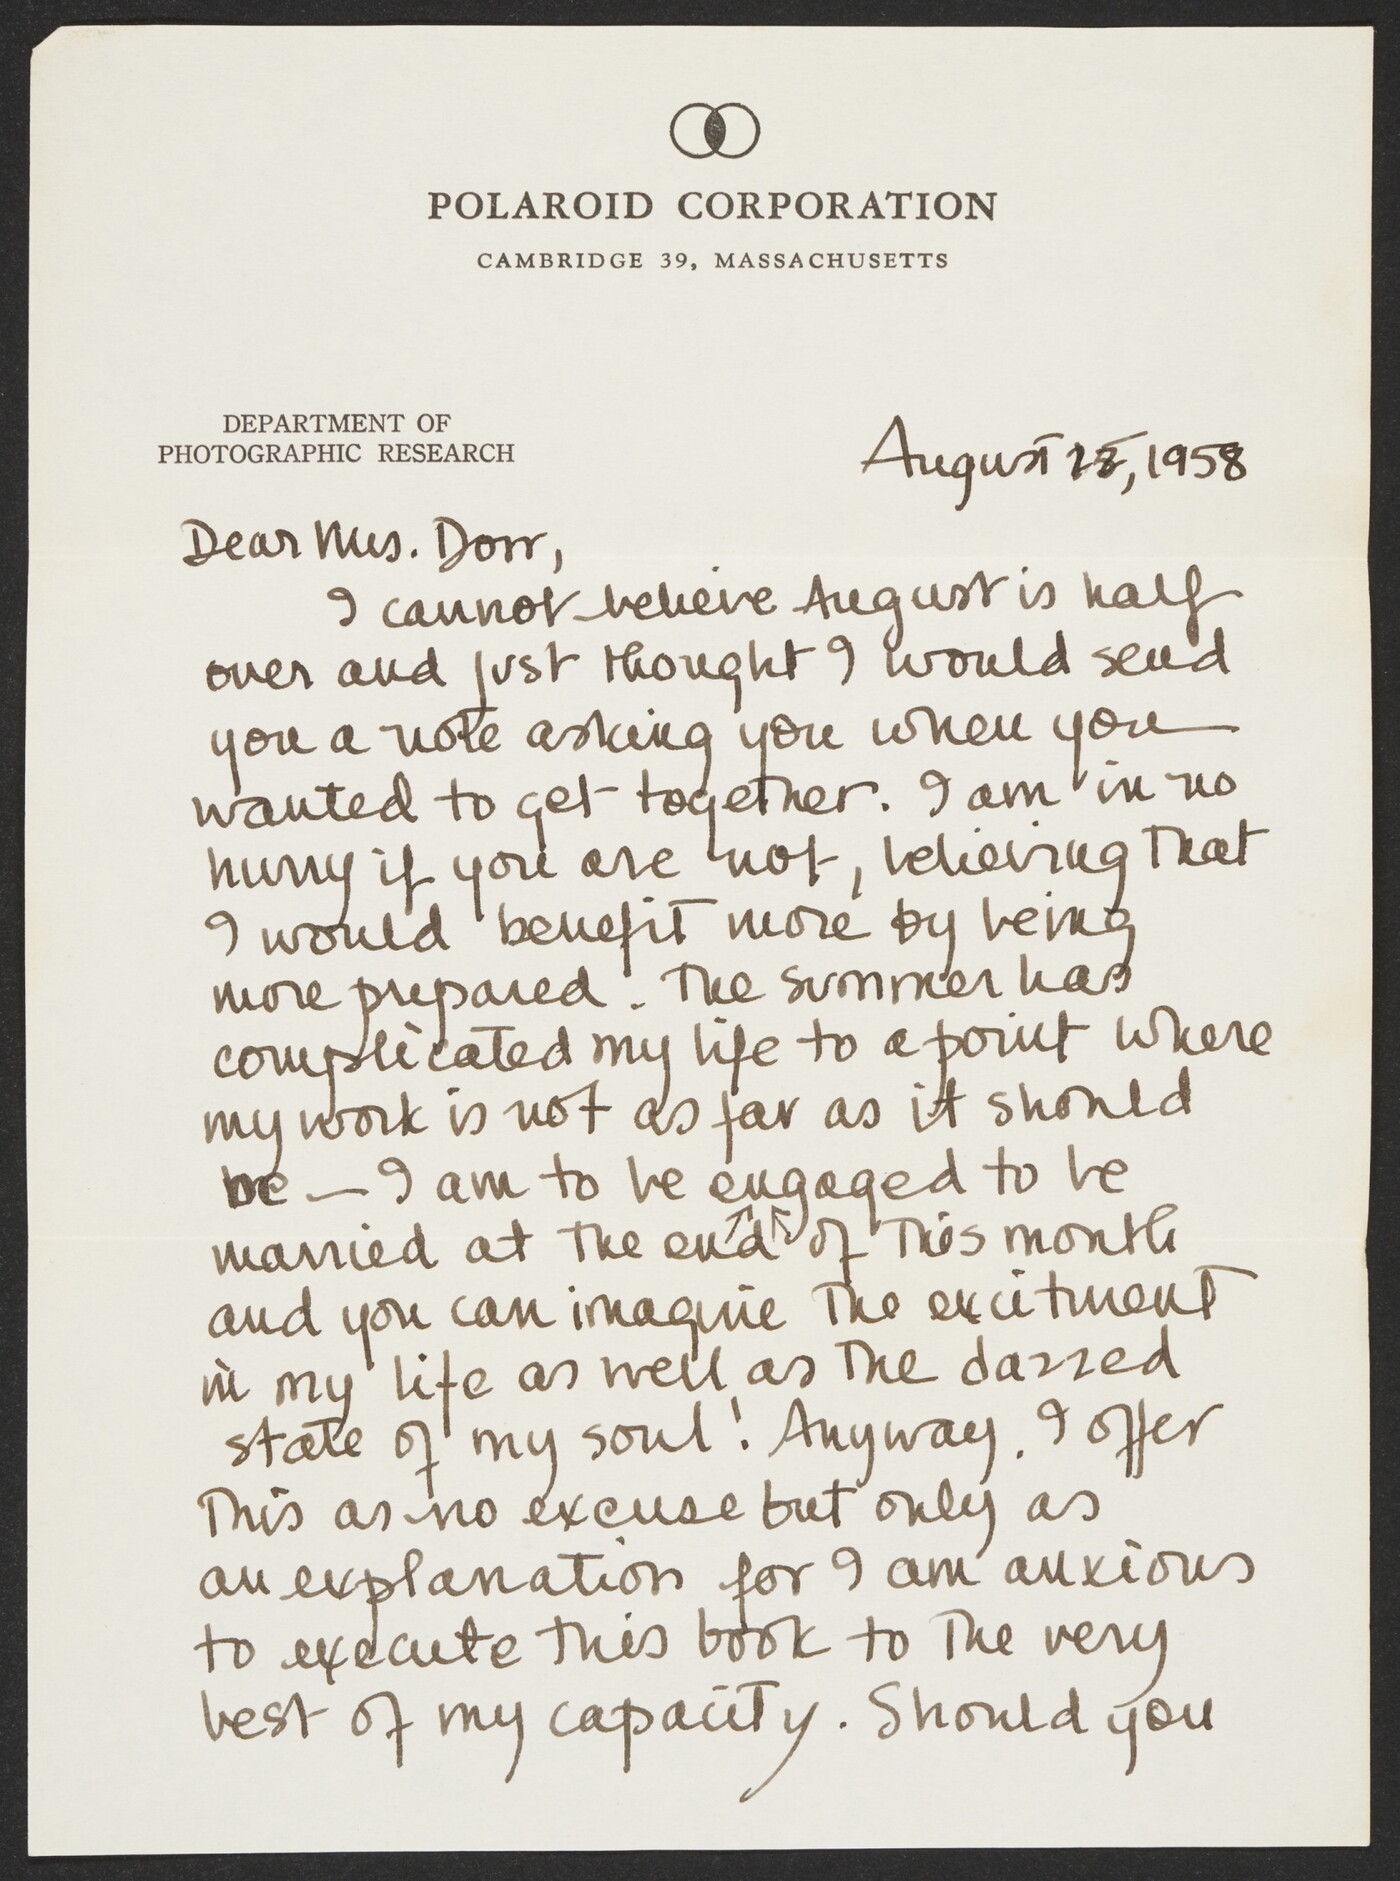 POLAROID CORPORATION
CAMBRIDGE 39, MASSACHUSETTS
DEPARTMENT OF
PHOTOGRAPHIC RESEARCH
August 18, 1958
Dear Mrs. Dorr,
I cannot believe August is half
over and just thought I would send
you a note asking you when you
wanted to get together. I am in no
hurry if you are not, believing that
I would benefit more by being
more prepared. The summer has
complicated my life to a point where
my work is not as far as it should
be — I am to be engaged to be
married at the end of this month
and you can imagine the excitment
in my life as well as the dazzed
state of my soul! Anyway, I offer
this as no excuse but only as
an explanation for I am anxious
to execute this book to the very
best of my capacity. Should you